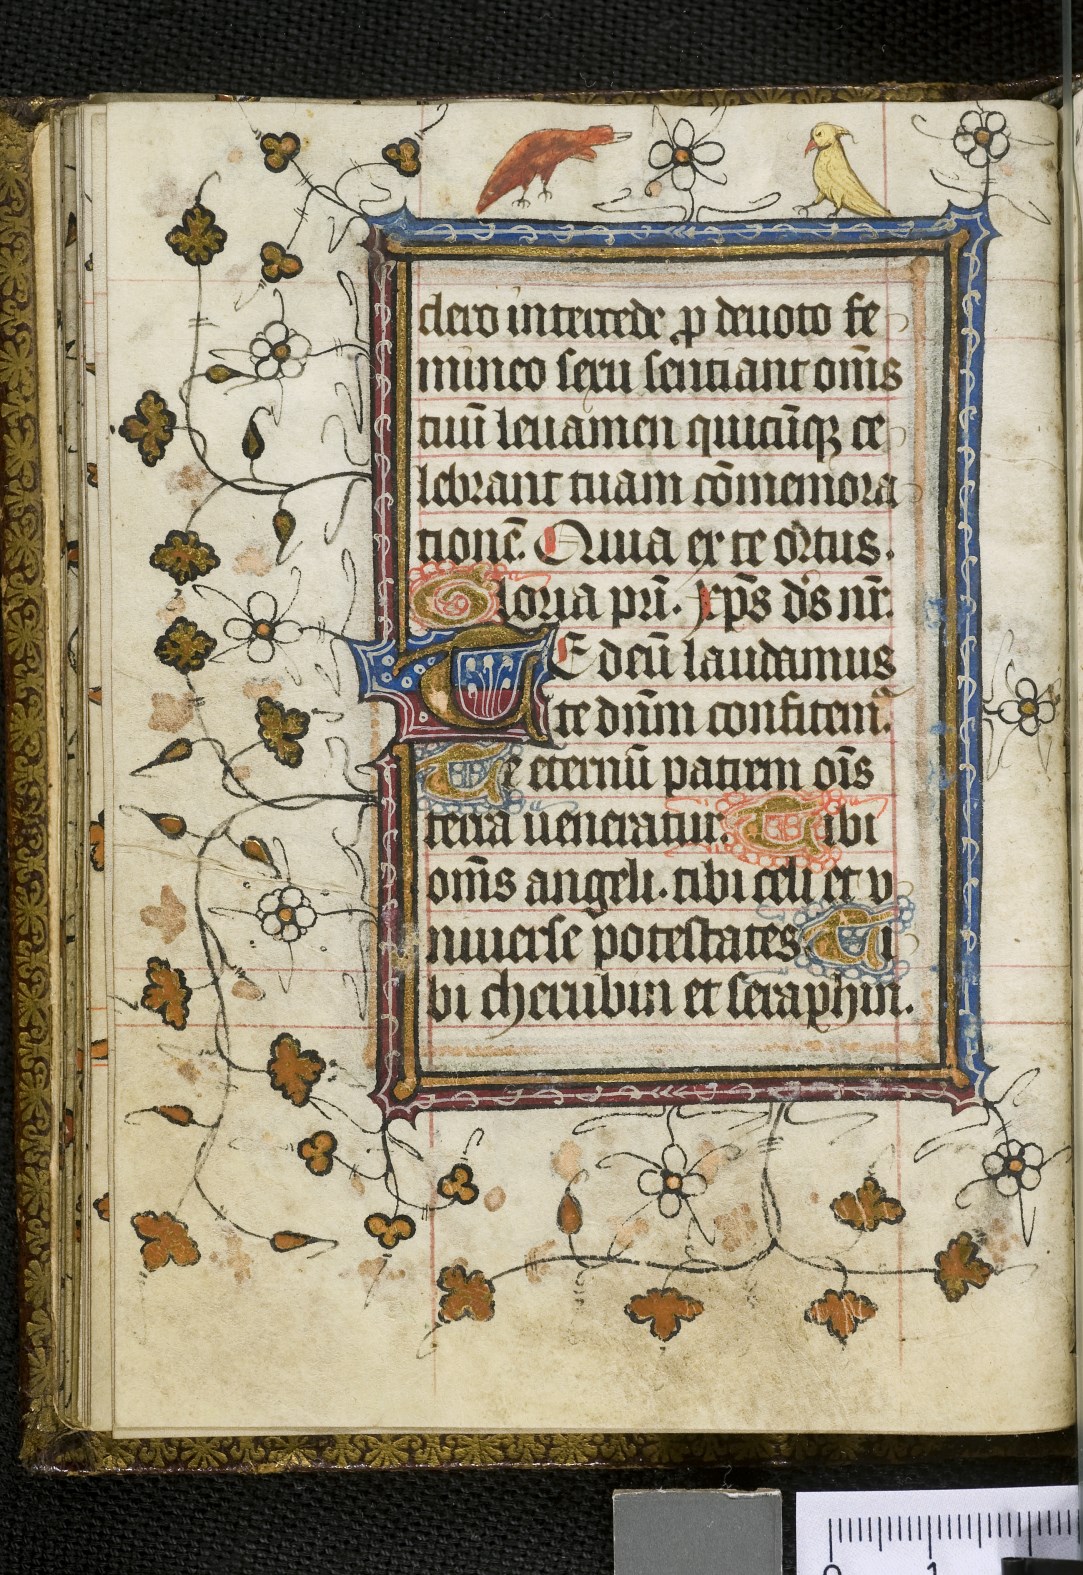 clero intercede ꝑ deuoto fe
mineo sexu sentiant om̄s
tuū leuamen quicūqꝫ ce
lebrant tuam cōmemora
tionē. Quia ex te ortus.
Gloria pri̅. xp̅s dn̅s nr̅.
TE deū laudamus
te dn̅m confitemr̅.
Te eternū patrem oīs
terra ueneratur. Tibi
om̄s angeli. tibi celi et v
niuerse potestates Ti
bi cherubin et seraphin.
0 1